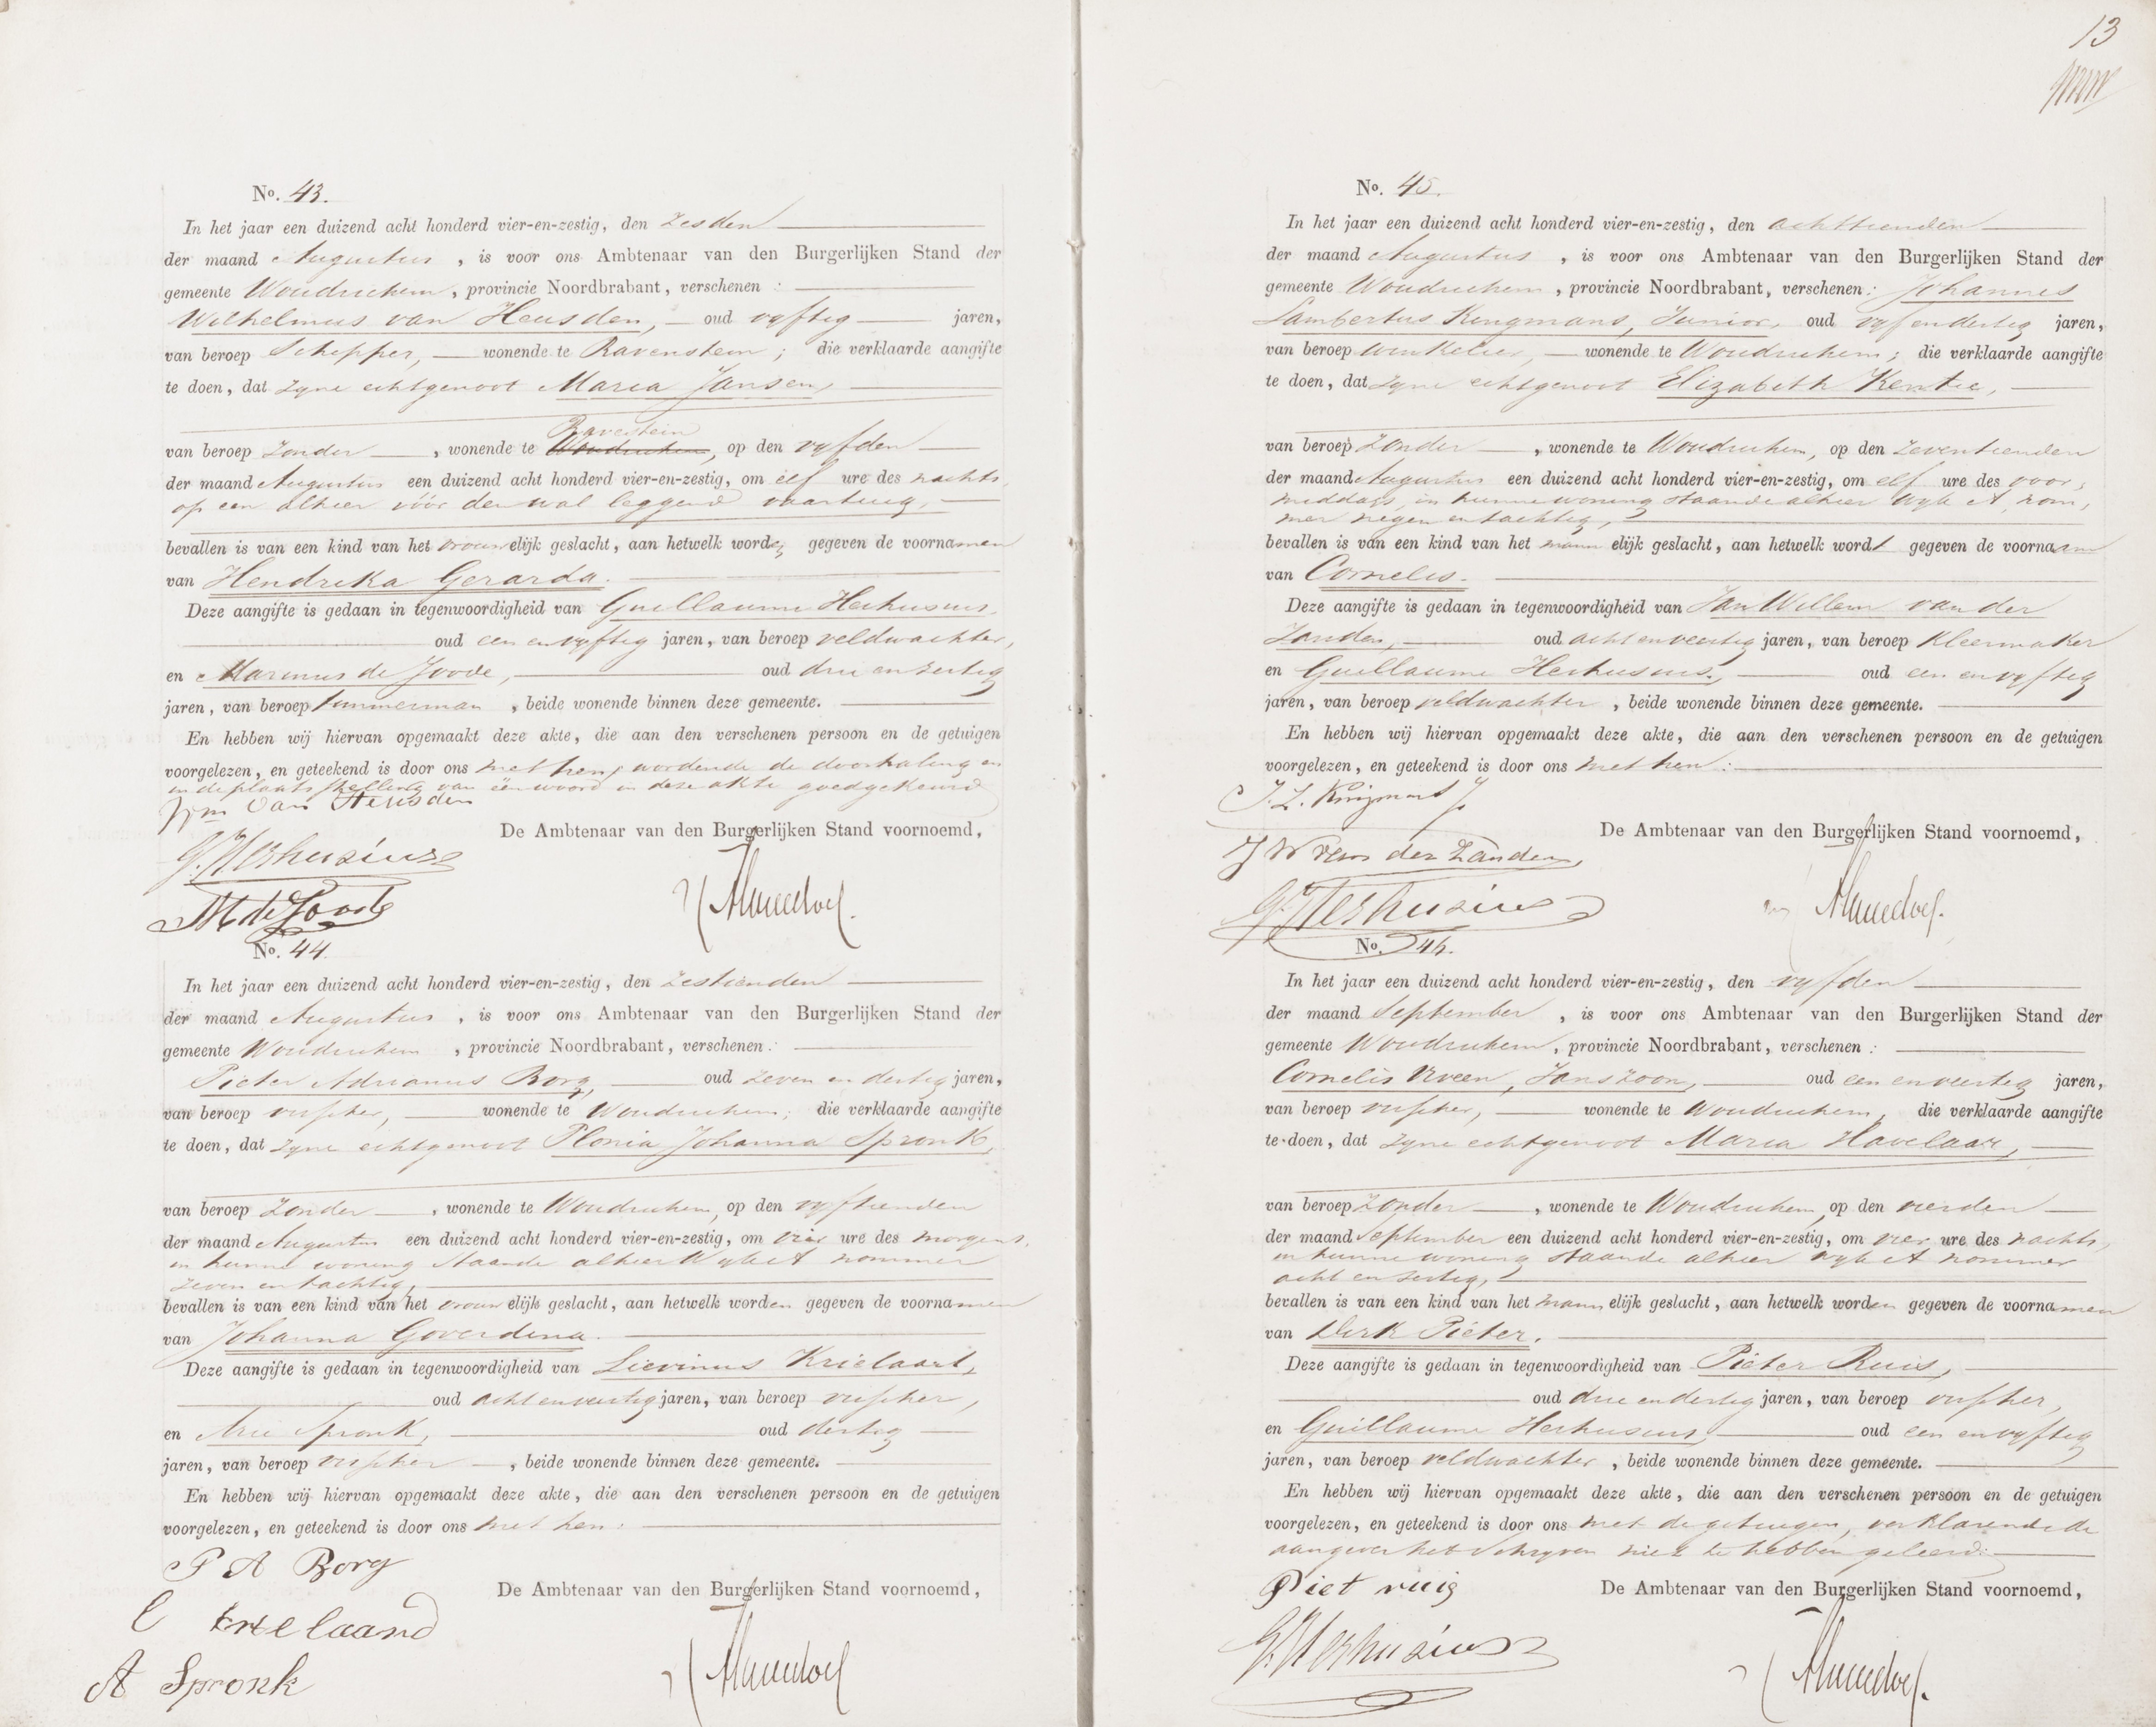 No. 43.
In het jaar een duizend acht honderd vier-en-zestig, den zesden
der maand Augustus, is voor ons Ambtenaar van den Burgerlijken Stand der
gemeente Woudrichem, provincie Noordbrabant, verschenen:
Wilhelmus van Heusden, oud vyftig jaren,
van beroep Schipper, wonende te Ravenstein; die verklaarde aangifte
te doen, dat zyne echtgenoot Maria Jansen,
Ravestein
van beroep zonder, wonende te Woudrichem, op den vyfden
der maand Augustus een duizend acht honderd vier-en-zestig, om elf ure des nachts,
op een alhier vóór den wal leggend vaartuig,
bevallen is van een kind van het vrouwelijk geslacht, aan hetwelk worden gegeven de voornamen
van Hendrika Gerarda.
Deze aangifte is gedaan in tegenwoordigheid van Guillaume Herhusius,
oud een en vyftig jaren, van beroep veldwachter,
en Marinus de Joode, oud drie en
jaren, van beroep timmerman, beide wonende binnen deze gemeente.
En hebben wij hiervan opgemaakt deze akte, die aan den verschenen persoon en de getuigen
voorgelezen, en geteekend is door ons met hen, wordende de doorhaling en
in de plaats stelling van één woord in deze akte goedgekeurd
Wm van Heusden
De Ambtenaar van den Burgerlijken Stand voornoemd,
G. Herhusius
M de Joode
No. 44.
In het jaar een duizend acht honderd vier-en-zestig, den zestienden
der maand Augustus, is voor ons Ambtenaar van den Burgerlijken Stand der
gemeente Woudrichem, provincie Noordbrabant, verschenen:
Pieter Adrianus Borg, oud zeven en dertig jaren,
van beroep visscher, wonende te Woudrichem; die verklaarde aangifte
te doen, dat zyne echtgenoot Plonia Johanna Spronk,
van beroep zonder, wonende te Woudrichem, op den vyftienden
der maand Augustus een duizend acht honderd vier-en-zestig, om vier ure des morgens,
in hunne woning staande alhier Wyk A nommer
zeven en tachtig,
bevallen is van een kind van het vrouwelijk geslacht, aan hetwelk worden gegeven de voornamen
van Johanna Goverdina.
Deze aangifte is gedaan in tegenwoordigheid van Lievinus Krielaart,
oud acht en veertig jaren, van beroep visscher,
en Arie Spronk, oud dertig
jaren, van beroep visscher, beide wonende binnen deze gemeente.
En hebben wij hiervan opgemaakt deze akte, die aan den verschenen persoon en de getuigen
voorgelezen, en geteekend is door ons met hen:
P A Borg
De Ambtenaar van den Burgerlijken Stand voornoemd,
A Spronk
13
No. 45.
In het jaar een duizend acht honderd vier-en-zestig, den achttienden
der maand Augustus, is voor ons Ambtenaar van den Burgerlijken Stand der
gemeente Woudrichem, provincie Noordbrabant, verschenen: Johannes
Lambertus Kingmans, Junior, oud vyf en dertig jaren,
van beroep winkelier, wonende te Woudrichem; die verklaarde aangifte
te doen, dat zyne echtgenoot Elizabeth Kentie,
van beroep zonder, wonende te Woudrichem, op den zeventienden
der maand Augustus een duizend acht honderd vier-en-zestig, om elf ure des voor,
middags, in hunne woning staande alhier Wyk A, nom,
mer negen en tachtig,
bevallen is van een kind van het mannelijk geslacht, aan hetwelk wordt gegeven de voornaam
van Cornelis.
Deze aangifte is gedaan in tegenwoordigheid van Jan Willem van der
Zanden, oud acht en veertig jaren, van beroep Kleermaker
en Guillaume Herhusius, oud een en vyftig
jaren, van beroep veldwachter, beide wonende binnen deze gemeente.
En hebben wij hiervan opgemaakt deze akte, die aan den verschenen persoon en de getuigen
voorgelezen, en geteekend is door ons met hen:
De Ambtenaar van den Burgerlijken Stand voornoemd,
J W van der Zanden
G. Herhusius
No. 46.
In het jaar een duizend acht honderd vier-en-zestig, den vyfden
der maand September, is voor ons Ambtenaar van den Burgerlijken Stand der
gemeente Woudrichem, provincie Noordbrabant, verschenen:
Cornelis Veen, Janszoon, oud een en veertig jaren,
van beroep visscher, wonende te Woudrichem, die verklaarde aangifte
te doen, dat zyne echtgenoot Maria Havelaar,
van beroep zonder, wonende te Woudrichem, op den vierden
der maand September een duizend acht honderd vier-en-zestig, om vier ure des nachts,
in hunne woning staande alhier wyk A nommer
acht en
bevallen is van een kind van het mannelijk geslacht, aan hetwelk worden gegeven de voornamen
van Dirk Pieter.
Deze aangifte is gedaan in tegenwoordigheid van Pieter Ruis,
oud drie en dertig jaren, van beroep visscher,
en Guillaume Herhusius, oud een en vyftig
jaren, van beroep veldwachter, beide wonende binnen deze gemeente.
En hebben wij hiervan opgemaakt deze akte, die aan den verschenen persoon en de getuigen
voorgelezen, en geteekend is door ons met de getuigen, verklarende de
aangever het schryven niet te hebben geleerd:
Piet ruis
De Ambtenaar van den Burgerlijken Stand voornoemd,
G. Herhusius